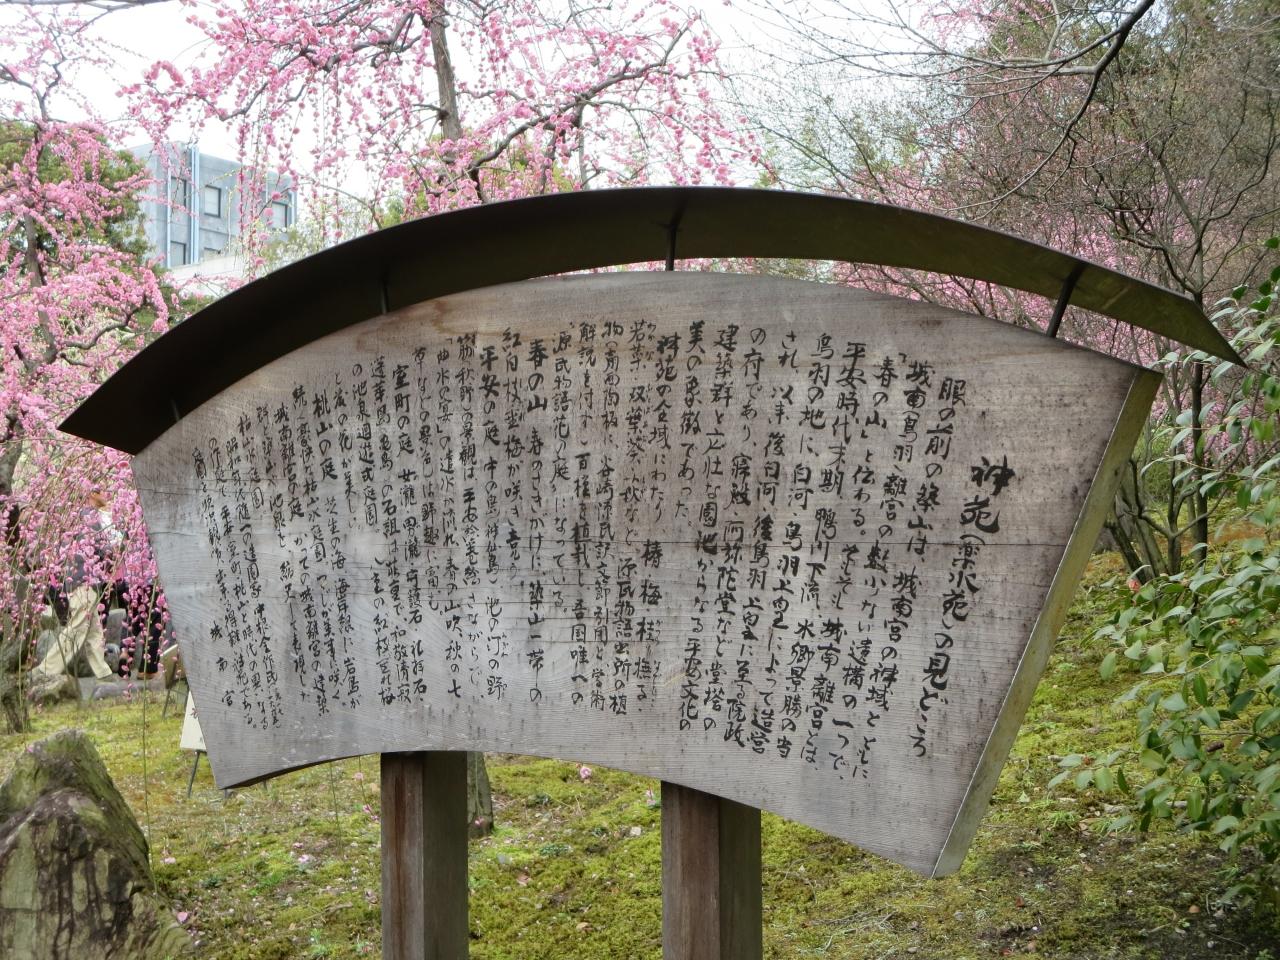 神苑(楽水苑)の見どころ
眼の前の築山は、城南宮の神域とともに
城南(鳥羽)離宮の数少ない遺構の一つで、
「春の山」と伝わる。そもそも城南離宮とは、
平安時代末期、鴨川下流、水郷景勝の当
鳥羽の地に、白河・鳥羽上皇によって造営
され、以来、後白河、後鳥羽上皇に至る院政
の府であり、寝殿、阿弥陀堂など堂塔の
建築群と広壮な園池からなる平安文化の
美の象徴であった。
神苑の全域にわたり 椿 梅 桂 撫子
若菜 双葉葵 秋など源氏物語出所の植
物(南西陶板に谷崎源氏訳文節引用と学術
解説を付す)百種を植栽し、吾国唯一の
「源氏物語花の庭」になっている。
春の山 春のさきがけに、築山一帯の
紅白枝垂梅が咲き香る
平安の庭 中の島(神仙島) 池の汀の野
筋 秋野の景観は 王朝絵巻さながらで、
「曲水の宴」の遣水が流れ、春の山吹、秋の七
草などの景色は鮮麗に富む
室町の庭 女瀧 男瀧 守護石 礼拝石
蓬莱島 亀島の石組は荘重で、和敬清寂
の池泉廻遊式庭園
桃山の庭 芝生の海 海岸線に岩島が
続く豪快な枯山水庭園 つつじが美事に咲く
城南離宮の庭 かつての城南離宮の建築
群 築山、池泉を 結晶し表現した
枯山水庭園
昭和の小堀遠州 中根金作氏
の作庭で、平安 室町 桃山と時代の異なる
城南宮